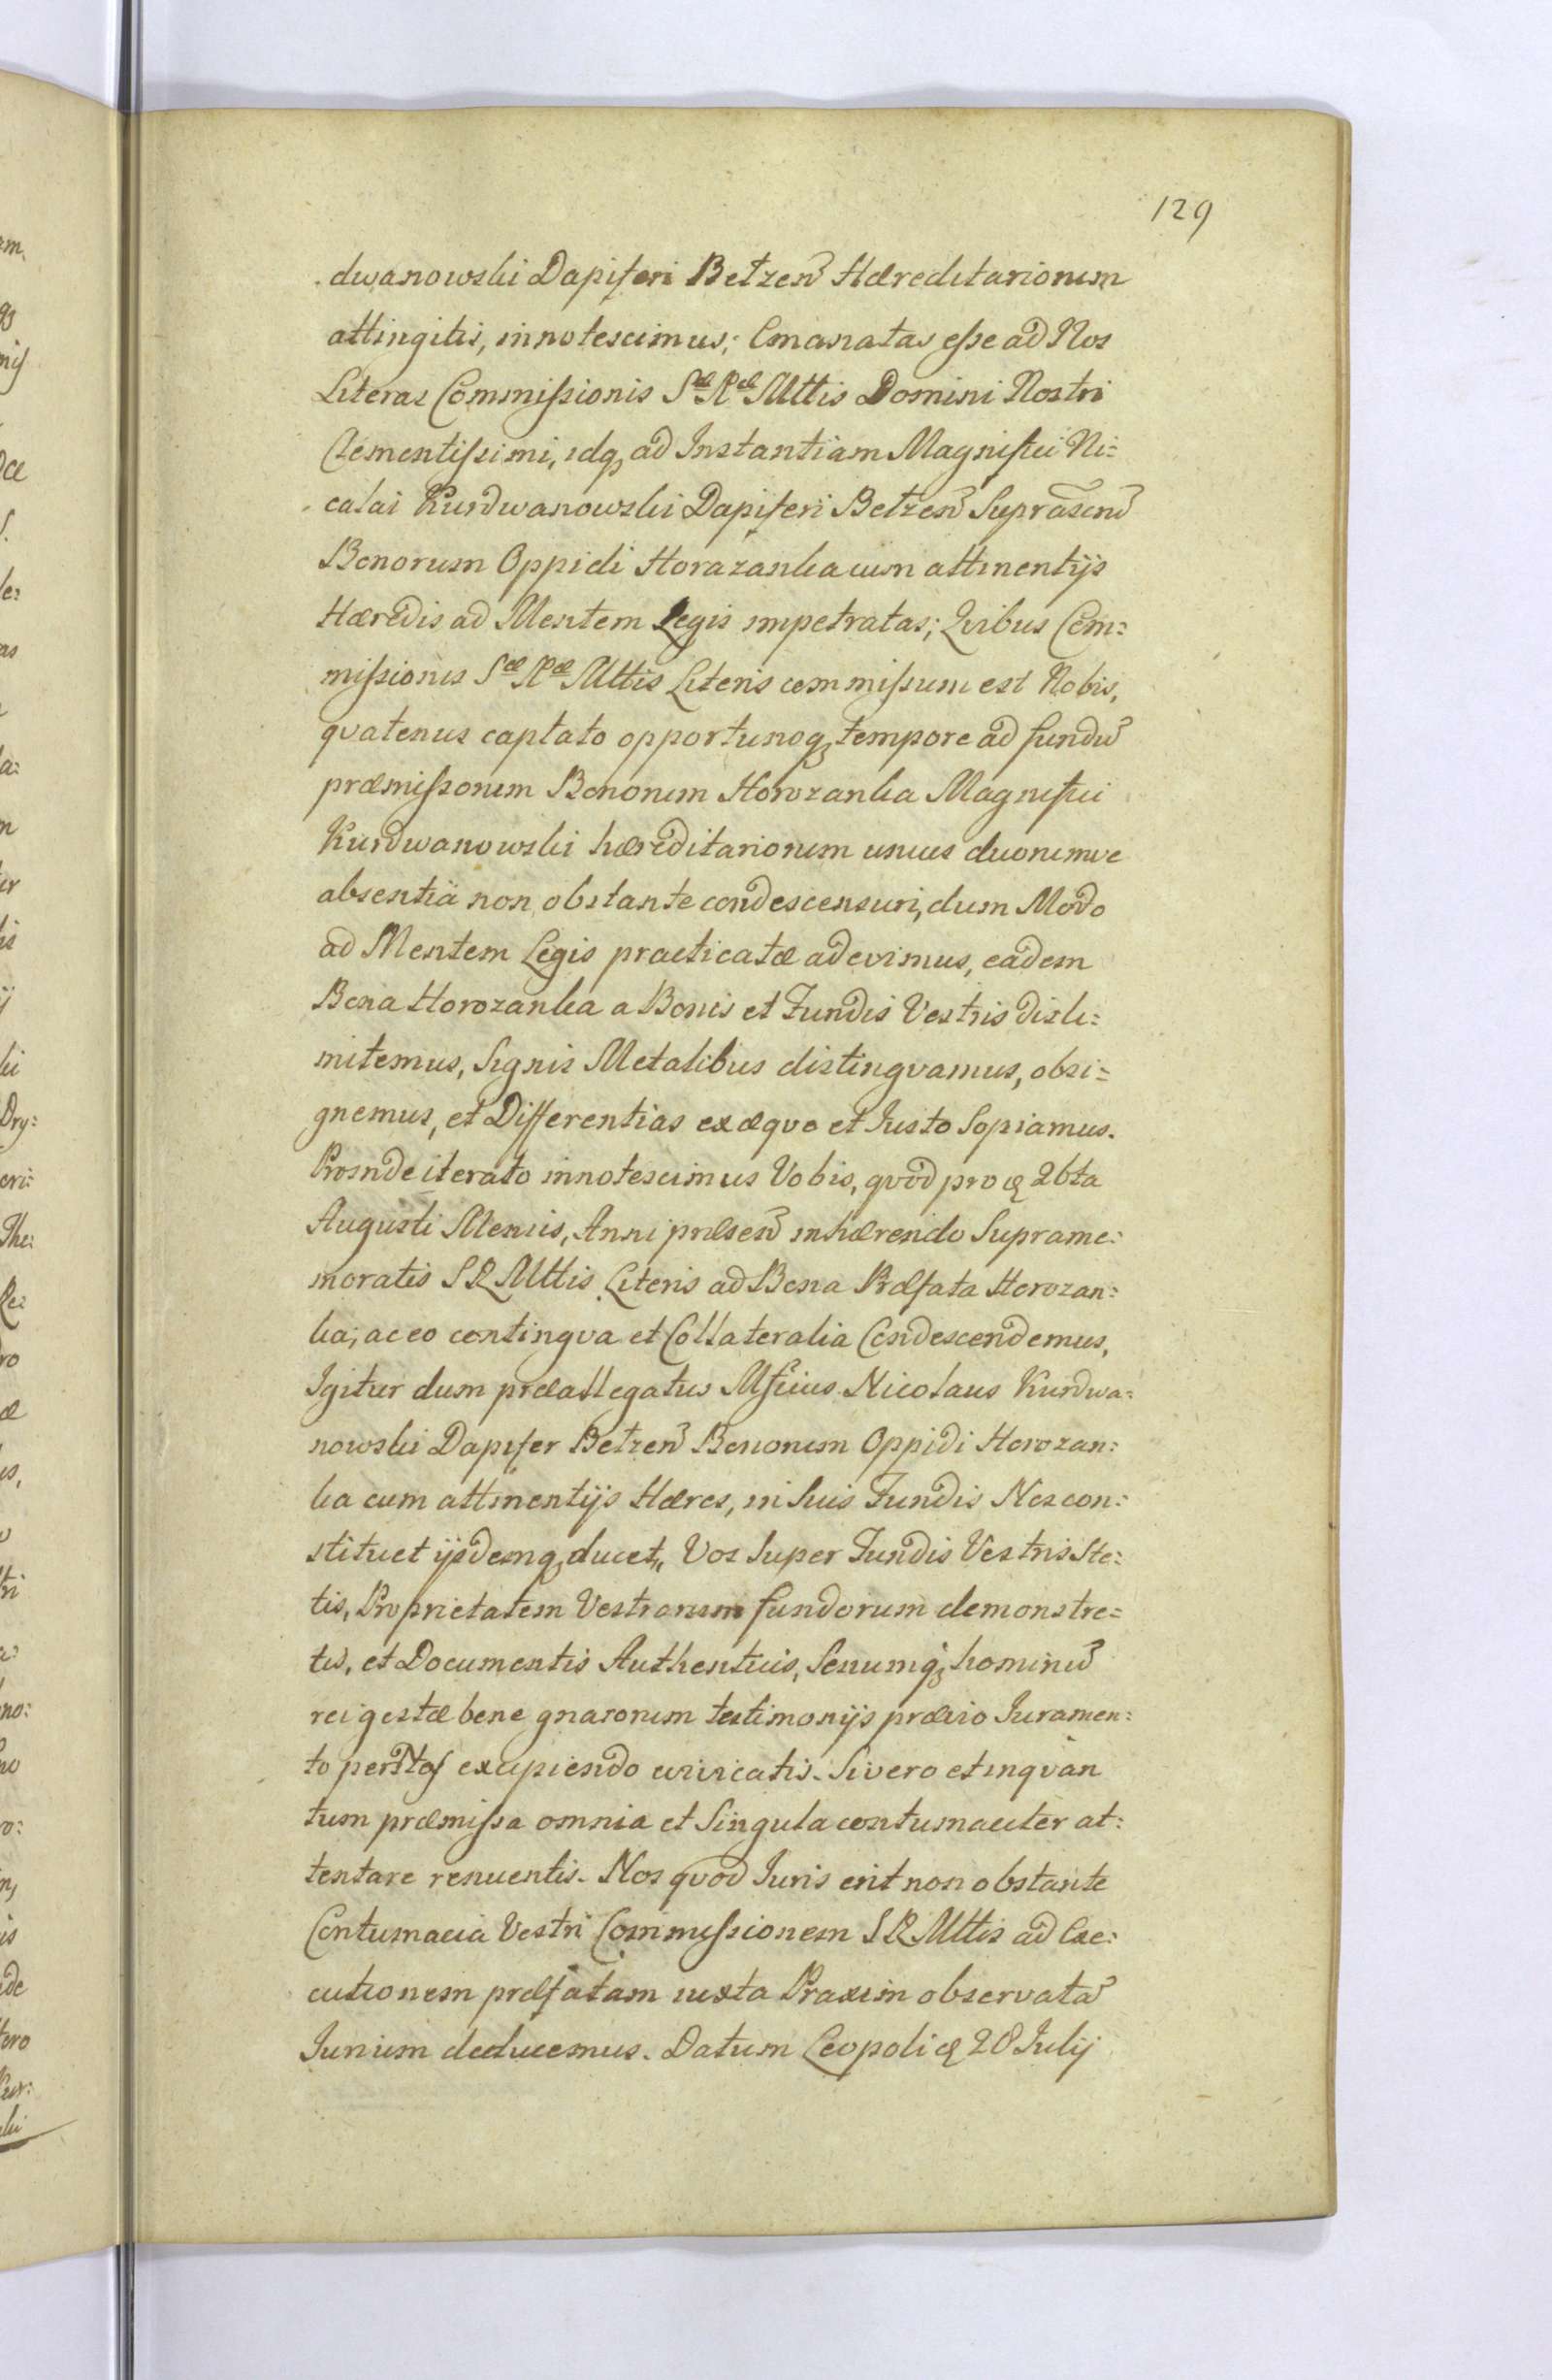 129
dwanowski Dapiferi Betzen̄ Hæreditariorum
attingitis, innotescimus; Emanatas esse ad Nos
Literas Commissionis Sæ Ræ Mttis Domini Nostri
Clementissimi, idq; ad Instantiam Magnifici Ni=
colai Kurdwanowski Dapiferi Betzen̄ Suprascrip̄
Bonorum Oppidi Horazanka cum attinentijs
Hæredis ad Mentem Legis impetratas; Qvibus Com=
missionis Sæ Ræ Mttis Literis commissum est Nobis,
qvatenus captato opportunoq; tempore ad fundū
præmissorum Bonorum Horozanka Magnifici
Kurdwanowski hæreditariorum unius duorumve
absentiä non obstante condescensuri, dum Modo
ad Mentem Legis practicatæ adevimus, eadem
Bona Horozanka a Bonis et Fundis Vestris disli=
mitemus, Signis Metalibus distingvamus, obsi=
gnemus, et Differentias ex æqvo et Justo Sopiamus.
Proinde iterato innotescimus Vobis, qvod pro die 26ta
Augusti Mensis, Anni præsen̄ inhærendo Suprame=
moratis S R Mttis Literis ad Bona Præfata Horozan=
ka; ac eo contingva et Collateralia Condescendemus,
Igitur dum præallegatus Mfcius Nicolaus Kurdwa=
nowski Dapifer Betzen̄ Bonorum Oppidi Horozan=
ka cum attinentijs Hæres, in Suis Fundis Nos con=
stituet ijsdemq; ducet, Vos Super Fundis Vestris Ste=
tis, Proprietatem Vestrorum fundorum demonstre=
tis, et Documentis Authenticis, Senumq; hominū
rei gestæ bene gnarorum testimonijs prævio Juramen=
to per Nos excipiendo evivicatis. Si vero et inqvan
tum præmissa omnia et Singula contumaciter at=
tentare renuentis. Nos qvod Juris erit non obstante
Contumacia Vestri Commissionem S R Mttis ad Exe=
cutionem præfatam iuxta Praxim observatā
Jurium deducemus. Datum Leopoli die 28 Julij